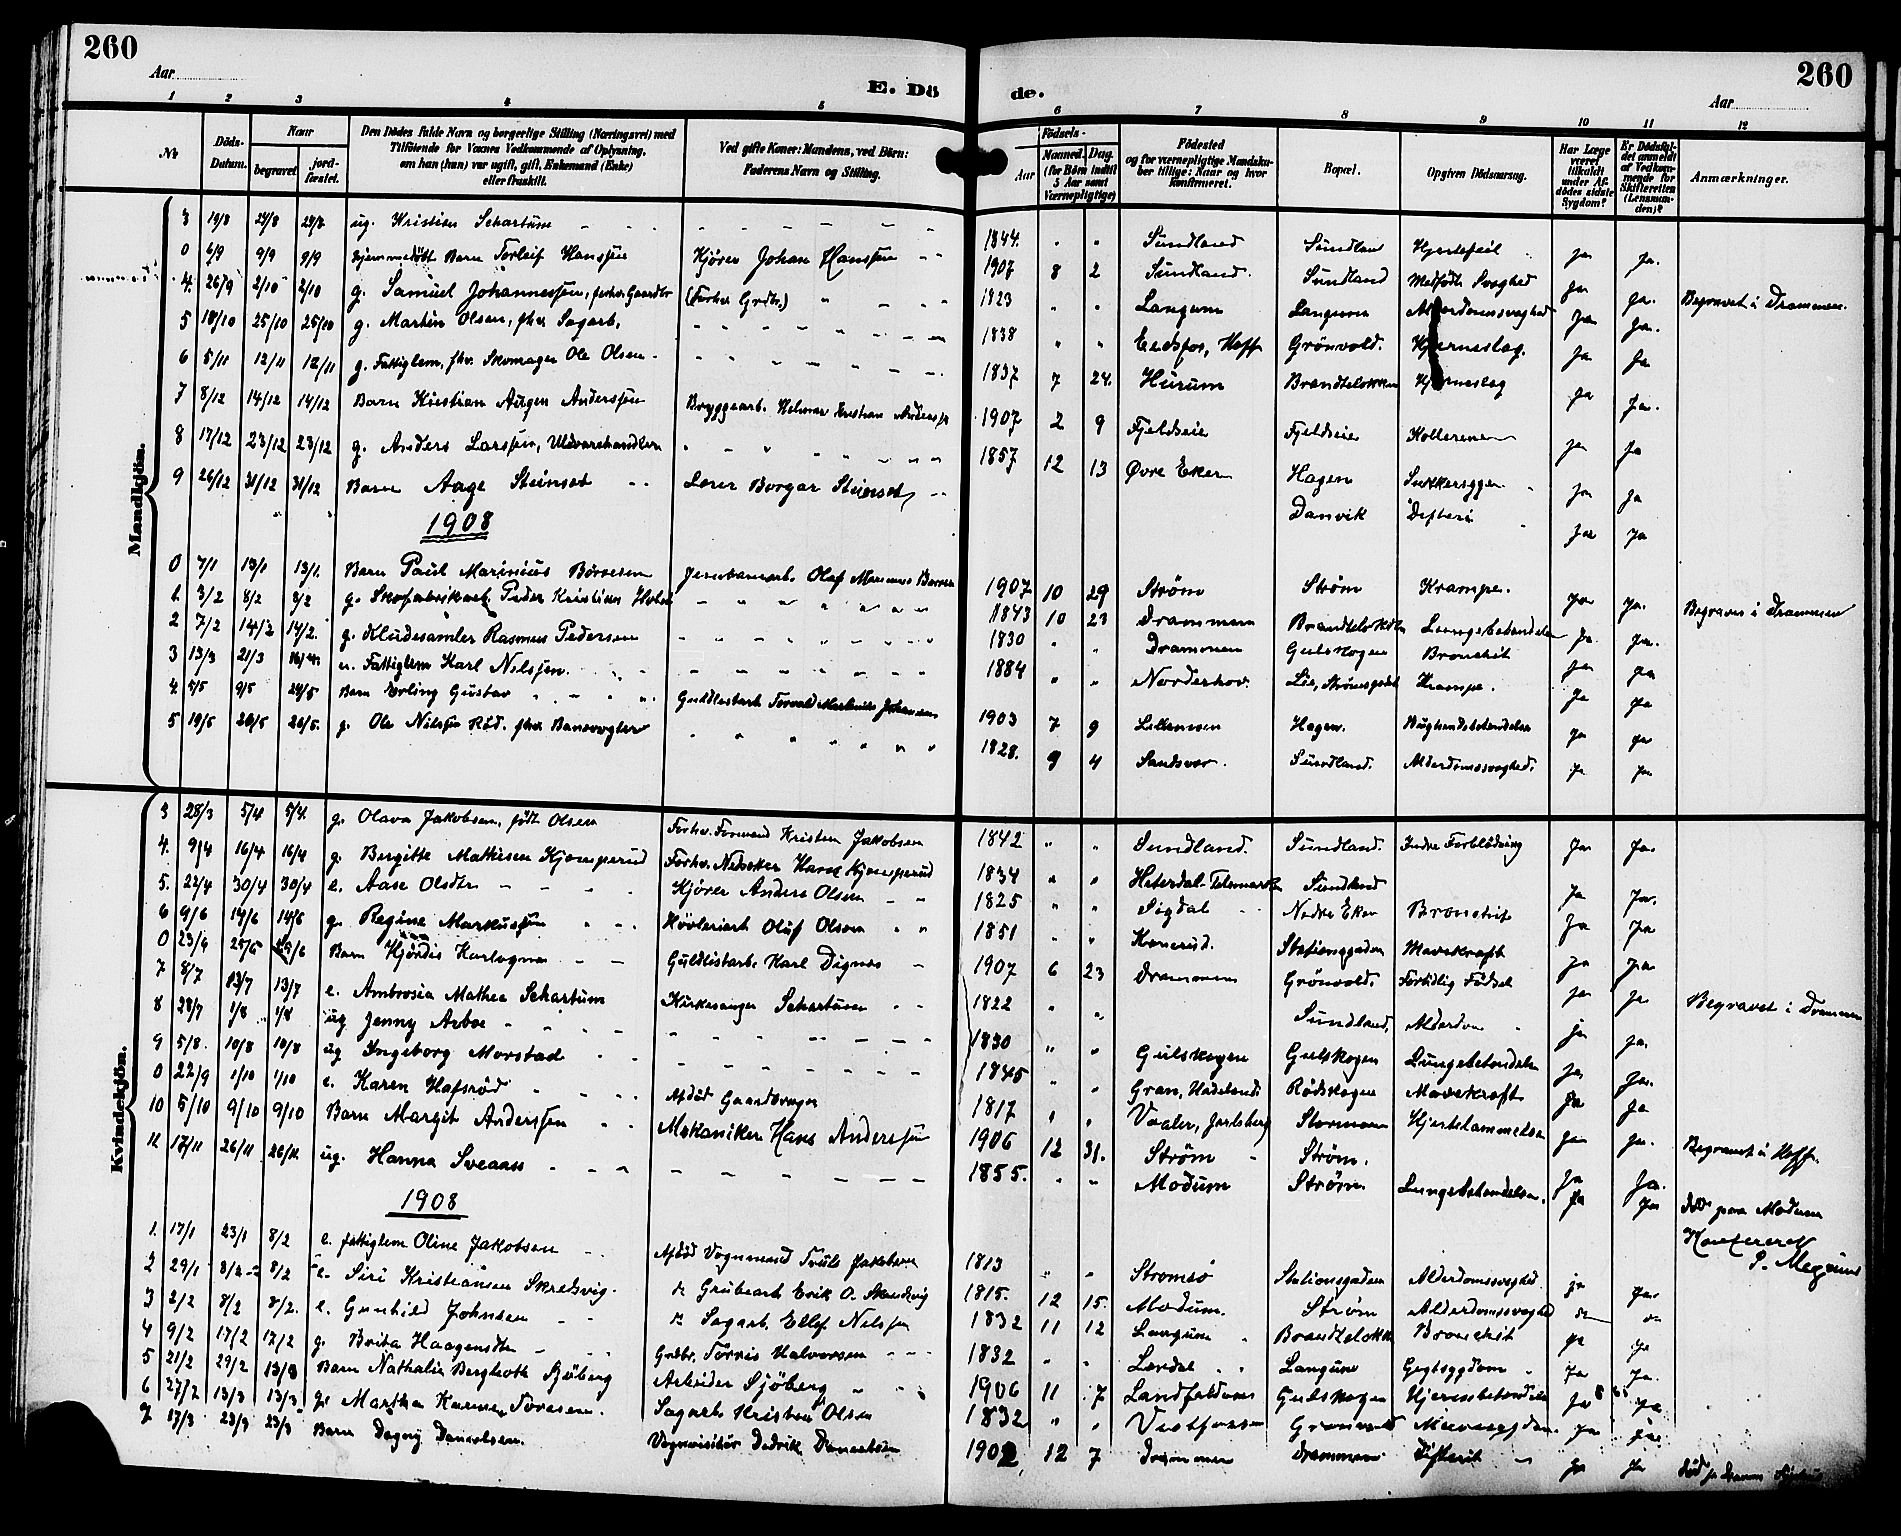 260
260
Aar
Aar
E. Dö
de.
1 2 3 4 5
6 7 8 9 10 11 12
No
Döds-Datum.
Naar
begravet
jord-fæstet.
Den Dödes fulde Navn og borgerlige Stilling (Næringsvei) med
Tilföiende for Voxnes Vedkommende af Oplysning,
om han (hun) var ugift, gift, Enkemand (Enke)
eller fraskilt.
Ved gifte Koner: Mandens, ved Börn:
Faderens Navn og Stilling.
Födsels-
Aar
Maaned. Dag.
(for Börn indtil
5 Aar samt
Værnepligtige)
Födested
og for værnepligtige Mandska-
ber tillige: Naar og hvor
konfirmeret.
Bopæl.
Opgiven Dödsaarsag.
Har Læge
været
tilkaldt
under Af-
dödes sidste
Sygdom?
Er Dödsfal-
det anmeldt
af Vedkom-
mende for
Skifteretten
(Lensman-
den)?
Anmærkninger.
Mandkjön.
3 19/8 24/8 ug. Kristian Schartum 1844. Sundland Hjertefeil Ja Ja.
0 6/9 9/9 9/9 hjemmedöbt Barn Torleif Hanssen Kjører Johan Hanssen 1907 8 2 Sundland. Sundland Medfödt Svaghed Ja Ja.
4. 26/9 2/10 2/10 g. Samuel Johannessen, forhv. Gaardbr (Forhv. Grdbr.) 1823 Langum Langum Alderdomssvaghed Ja Ja. Begravet i Drammen.
5 18/10 25/10 25/10 g. Martin Olsen, fhv. Sagarb. 1838 Eidsfos, Hoff Grönvold. Hjerneslag. Ja Ja
6 5/11 12/11 12/11 g. Fattiglem, fhv. Skomager Ole Olsen 1837 7 24. Hurum Brandteløkken Hjerneslag Ja Ja.
7 8/12 14/12 14/12 Barn Kristian Aagen Anderssen Bryggearb. Helmer Kristian 1907 2 9 Fjeldseie Fjeldseie Ja Ja
8 17/12 23/12 23/12 g. Anders Larssen, Uldvarehandler 1857 12 13 Øvre Eker Hagen Sukkersyge Ja Ja
9 26/12 31/12 31/12 Barn Aage Steinset Lærer Borgar Steinset Danvik Difteri Ja Ja
1908
0 7/1 13/1 13/1. Barn Paul Marinius Börresen Jernbanearb. Olaf 1907 10 29 Strøm Strøm Krampe. Ja Ja. Begraves i Drammen
1. 3/2 8/2 8/2 g. Skofabrikarb. Peder Kristian 1843 10 23 Drammen Lungebetændelse Ja Ja.
2 7/2 14/2 14/2. g. Kludesamler Rasmus Pedersen 1830 Drammen Gulskogen Bronchit Ja Ja
3 13/3 21/3 u. Fattiglem Karl Nilssen. 1884 Norderhov. Krampe. Ja Ja
4. 5/5 9/5 24/5 Barn Erling Gustav Guldlistarb. Torvald 1903 7 9 Hagen. Ja Ja
5 19/5 26/5 26/5. g. Ole Nilssen Röd. fhv. Banevogter 1828. 9 4 Sandsvær. Sundland. Alderdomssvaghed. Ja Ja
Kvindekjön.
3 28/3 5/4 5/4. g. Olava Jakobsen, født Olsen Forhv. Formand Kristen Jakobsen 1842 Sundland. Sundland. Indre Forblödning Ja Ja.
4. 9/4 16/4 16/4 g. Bergitte Mathisen Kjomperud Forhv. Hans Kjomperud 1834 Hiterdal Telemarken Sundland Ja Ja.
5. 22/4 30/4 30/4 e. Aase Olsdtr Kjører Anders Olsen 1825 Sigdal Nedre Eker Bronchit Ja Ja
6 9/6 14/6 14/6 g. Regine Markussen Høvleriarb Oluf Olsen 1851 Konerud. Stationsgaden Mavekræft Ja Ja
0 23/9 Barn Hjördis Guldlistarb. Karl Dignes 1907 6 23 Drammen Grönvold. Fortidlig Födsel Ja Ja
7 8/7 13/7 13/7 e. Ambrosia Mathea Schartum Kirkesanger Schartum 1822 Sundland, Alderdom Ja Ja. Begravet i Drammen
8 28/7 1/8 1/8 ug Jenny Arboe 1830 Gulskogen Gulskogen Lungebetændelse Ja Ja.
9 5/8. 10/8 10/8 ug Ingeborg Morstad 1845 Gran, Hadeland Rødskogen Mavekræft Ja Ja
0 22/9 1/10 1/10 e. Karen Hafsröd Afdöd Gaardbruger 1817 Vaaler, Jarlsberg Stormoen Hjertelammelse Ja Ja. Begravet i Hoff.
10 5/10 9/10 9/10 Barn Margit Anderssen Mekaniker Hans Anderssen 1906 12 31. Strøm Strøm. Ja Ja.
11 17/11 26/11 26/11. ug. Hanna Sveaass 1855. Modum Strøm Lungebetændelse. Ja Ja död paa Modum
1908
1. 17/1 23/1 8/2 e. fattiglem Oline Jakobsen Afdöd Vognmand Truls Jakobsen 1813 Strømsö Stationsgaden Alderdomssvaghed ja Ja.
2 29/1 8/2 8/2 e. Siri Kristiansen Skredsvig. Grubearb Erik O. Skredsvig 1815. 12 15. Modum. Strøm Alderdomssvaghed
3 2/2 8/2 8/2. e. Gunhild Johnsen Sagarb. Ellef Nilssen 1832 11 12 Langum Bronchit Ja Ja
4 9/2 17/2 17/2 g. Brita Haagensdtr Grdbr. Torris Halvorsen 1832 Lærdal Langum Gigtsygdom Ja Ja.
5 21/2 29/2 13/3 Barn Nathalie Bergliot Sjöberg Arbeider Sjöberg 1906 11 7 Landfaldøen Gulskogen Hjernebetændelse Ja Ja
6 27/2 13/3 13/3 g. Marthea Karine Toresen. Sagarb Kristen Olsen 1832 Vestfossen Grönvold Ja Ja.
7 17/3 23/3 23/3 Barn Dagny Danielsen. Vognvisitør Didrik Danielsen 1902 12 7 Drammen Drammen Difterit Ja Ja